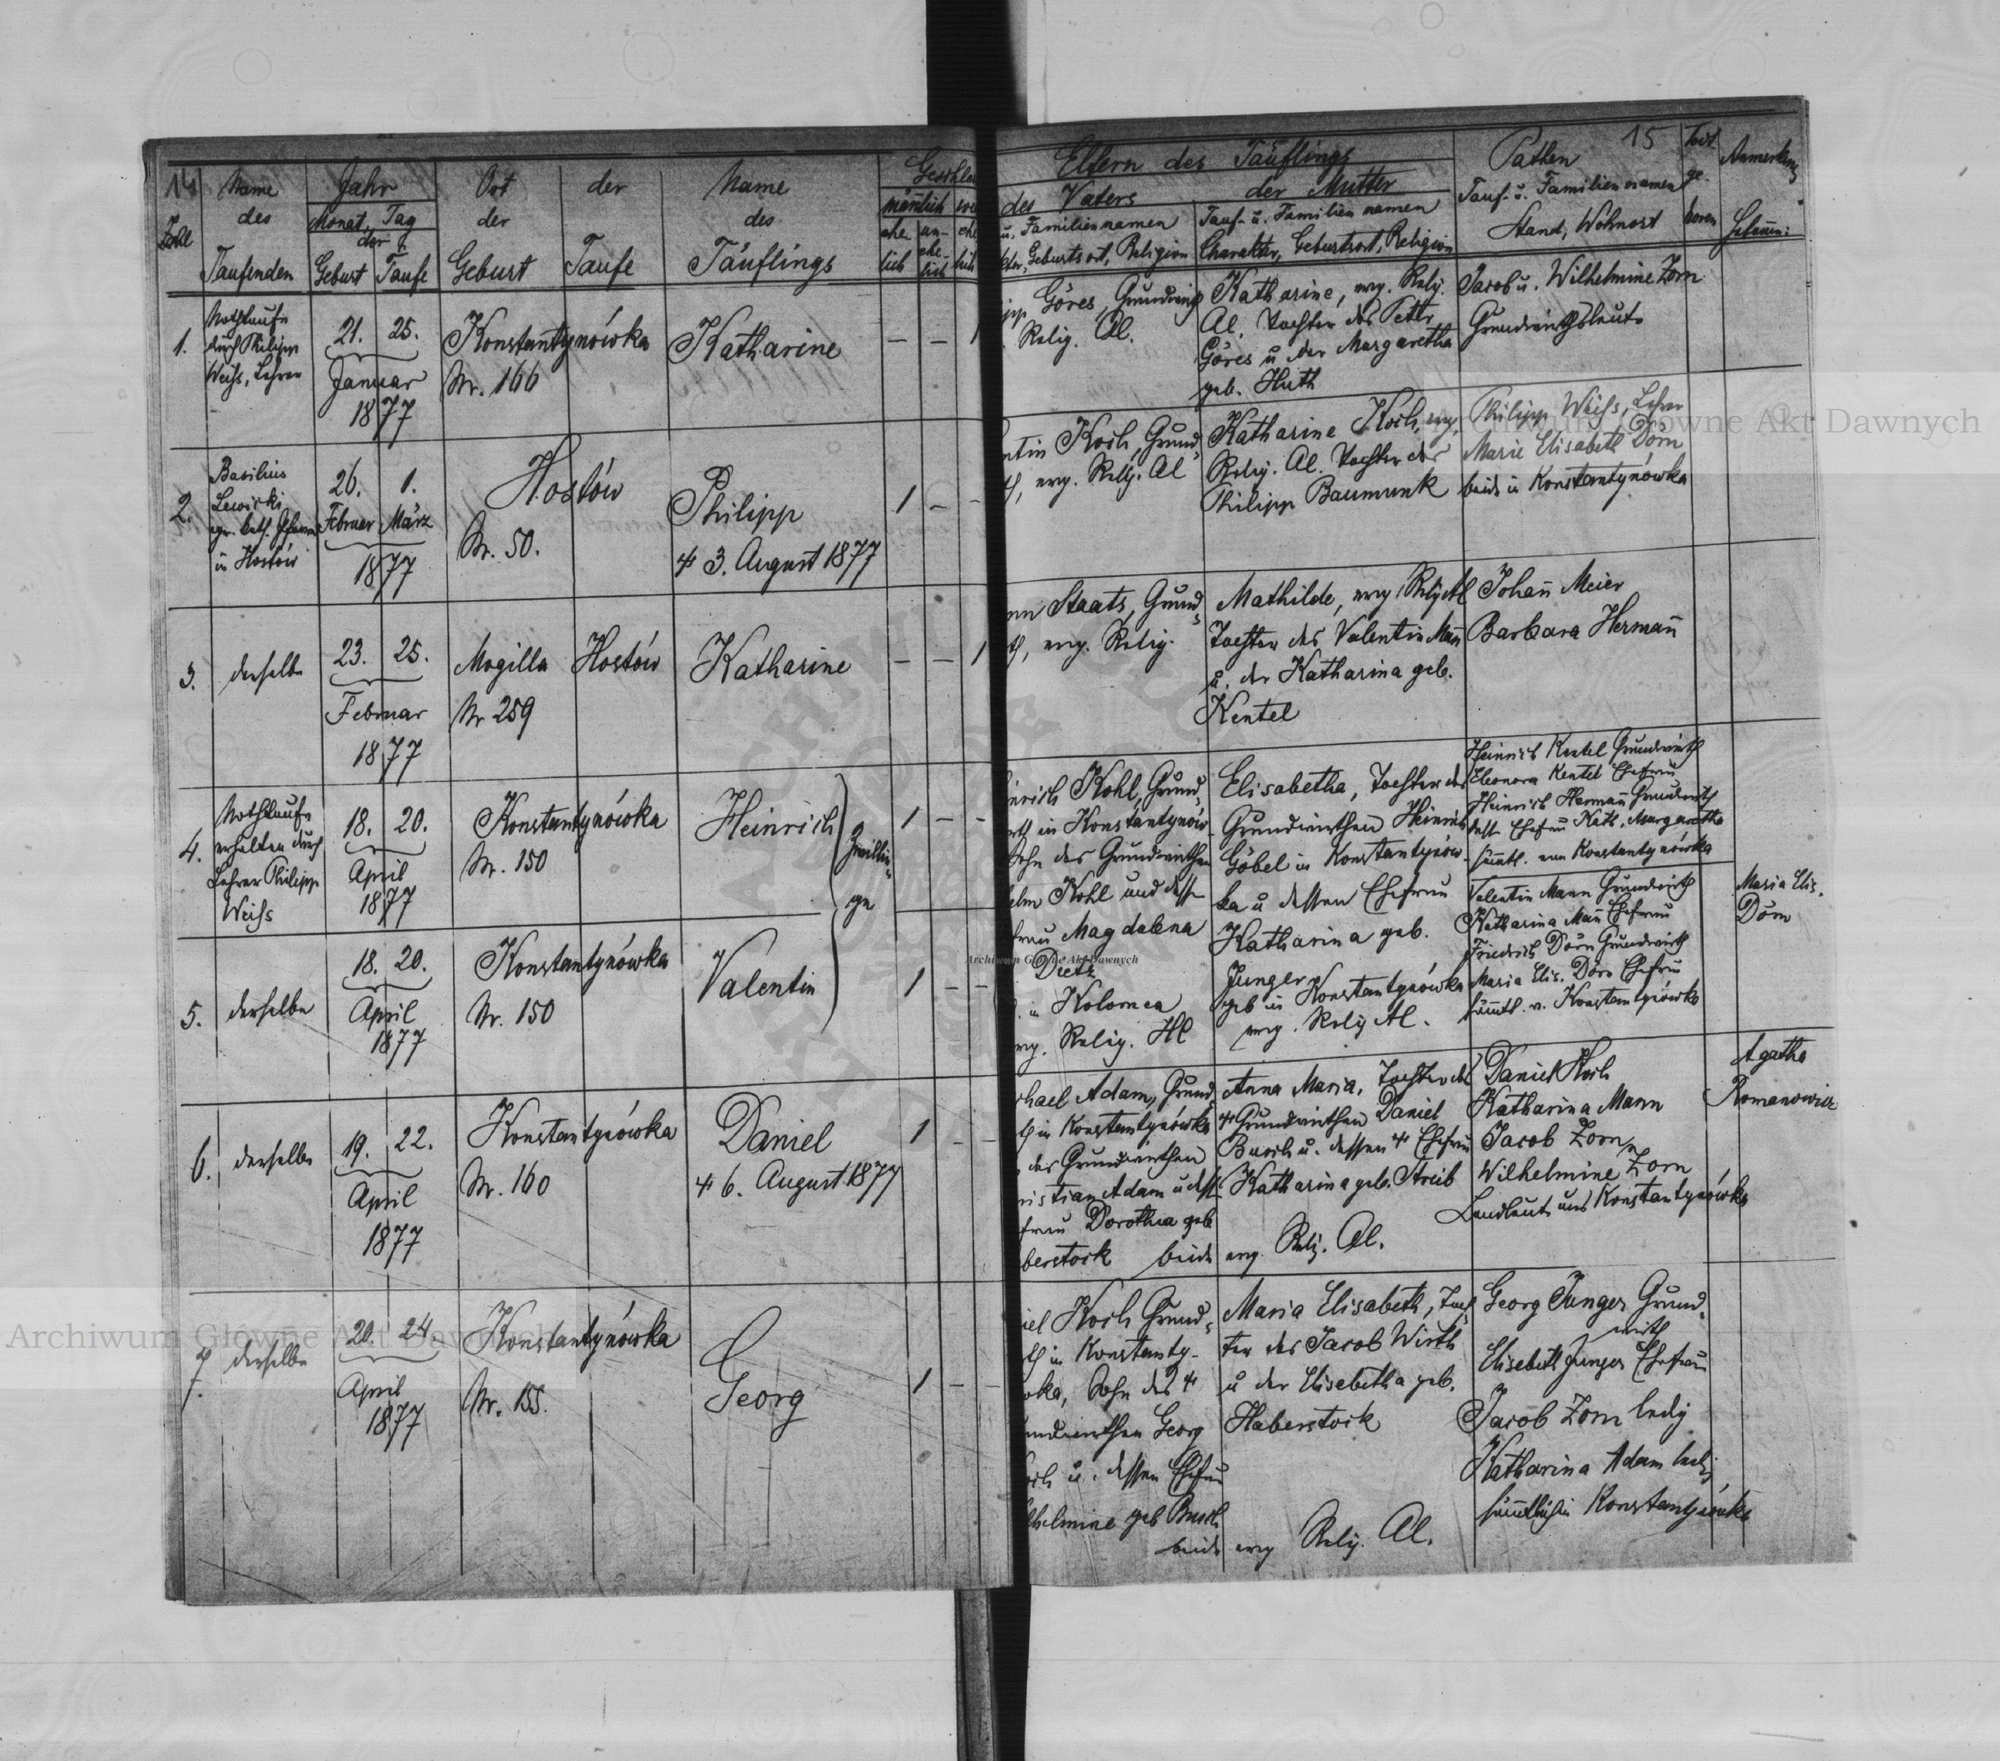 14
Zahl
Name
des
Taufenden
Jahr
Monat, Tag
der
Geburt Taufe
Ort der
der
Geburt Taufe
Name
des
Täuflings
Geschle
männlich
ehe
lich
un-
ehe-
lich
ehe
lich
1.
Nothtaufe
durch Philipp
Weihs, Lehrer
21. 25.
Januar
1877
Konstantynówka
Nr. 166
Katharine
— — 1
2.
Basilius
Lewicki
gr. kath. Pfarrer
in Hostów
26. 1.
Februar März
1877
Hostów
Nr. 50.
Philipp
3. August 1877
1 — —
3.
derselbe
23. 25.
Februar
1877
Mogilla Hostów
Nr 259
Katharine
— — 1
4.
Nothtaufe
erhalten durch
Lehrer Philipp
Weihs
18. 20.
April
1877
Konstantynówka
Nr. 150
Heinrich
Zwillin-
ge
1 — —
5.
derselbe
18. 20.
April
1877
Konstantynówka
Nr. 150
Valentin
1 — —
6.
derselbe
19. 22.
April
1877
Konstantynówka
Nr. 160
Daniel
6. August 1877
1 — —
7.
derselbe
20. 24.
April
1877
Konstantynówka
Nr. 155.
Georg
1 — —
15
Eltern des Täuflings
des Vaters
u. Familiennamen
Geburtsort, Religion
der Mutter
Tauf- u. Familiennamen
Charakter, Geburtsort, Religion
Pathen
Tauf- u. Familiennamen
Stand, Wohnort
Todt
ge-
boren
Anmerkung
Hebamme:
Göres, Grundwirth
Relig. Al.
Katharine, evg. Relig.
Al. Tochter des Peter
Göres u der Margaretha
geb. Huth
Jacob u. Wilhelmine Zorn
Grundwirthsleute
ntin Koch, Grund-
th, evg. Relig. Al
Katharine Koch, evg.
Relig. Al. Tochter des
Philipp Baumunk
Philipp Weihs, Lehrer
Marie Elisabeth Dörn
beide in Konstantynówka
nn Staats, Grund-
th, evg. Relig.
Mathilde, evg. Relig Al
Tochter des Valentin Mann
u. der Katharina geb.
Kentel
Johann Meier
Barbara Hermann
nrich Kohl, Grund-
rth in Konstantynów-
Sohn des Grundwirthen
elm Kohl und dessen
frau Magdalena
Dietz
in Kolomea
evg. Relig. Hl
Elisabetha, Tochter des
Grundwirthen Heinrich
Göbel in Konstantynów-
ka u dessen Ehefrau
Katharina geb.
Junger
geb in Konstantynówka
evg. Relig Al.
Heinrich Kentel Grundwirth
Eleonora Kentel Ehefrau
Heinrich Hermann Grundwirth
dess. Ehefrau Kath. Margaretha
sämmtl. von Konstantynówka
Valentin Mann Grundwirth
Katharina Mann Ehefrau
Friedrich Dörn Grundwirth
Maria Elis. Dörn Ehefrau
sämmtl. v. Konstantynówka
Maria Elis.
Dörn
chael Adam, Grund-
th in Konstantynówka
des Grundwirthen
ristian Adam u dess.
frau Dorothea geb
berstock beide
Anna Maria, Tochter des
Grundwirthen Daniel
Busch u. dessen Ehefrau
Katharina geb. Streib
evg. Relig. Al.
Daniel Koch
Katharina Mann
Jacob Zorn
Wilhelmine Zorn
Landleute aus Konstantynówka
Agatha
Romanowicz
iel Koch Grund-
th in Konstanty-
wka, Sohn des
undwirthen Georg
och u. dessen Ehefrau
lhelmine geb Busch
beide evg Relig. Al.
Maria Elisabeth, Toch-
ter des Jacob Wirth
u der Elisabetha geb.
Haberstock
Georg Junger Grund-
wirth
Elisabeth Junger Ehefrau
Jacob Zorn ledig
Katharina Adam ledig
sämmtlich in Konstantynówka
Archiwum Główne Akt Dawnych
Archiwum Główne Akt Dawnych
Archiwum Główne Akt Dawnych